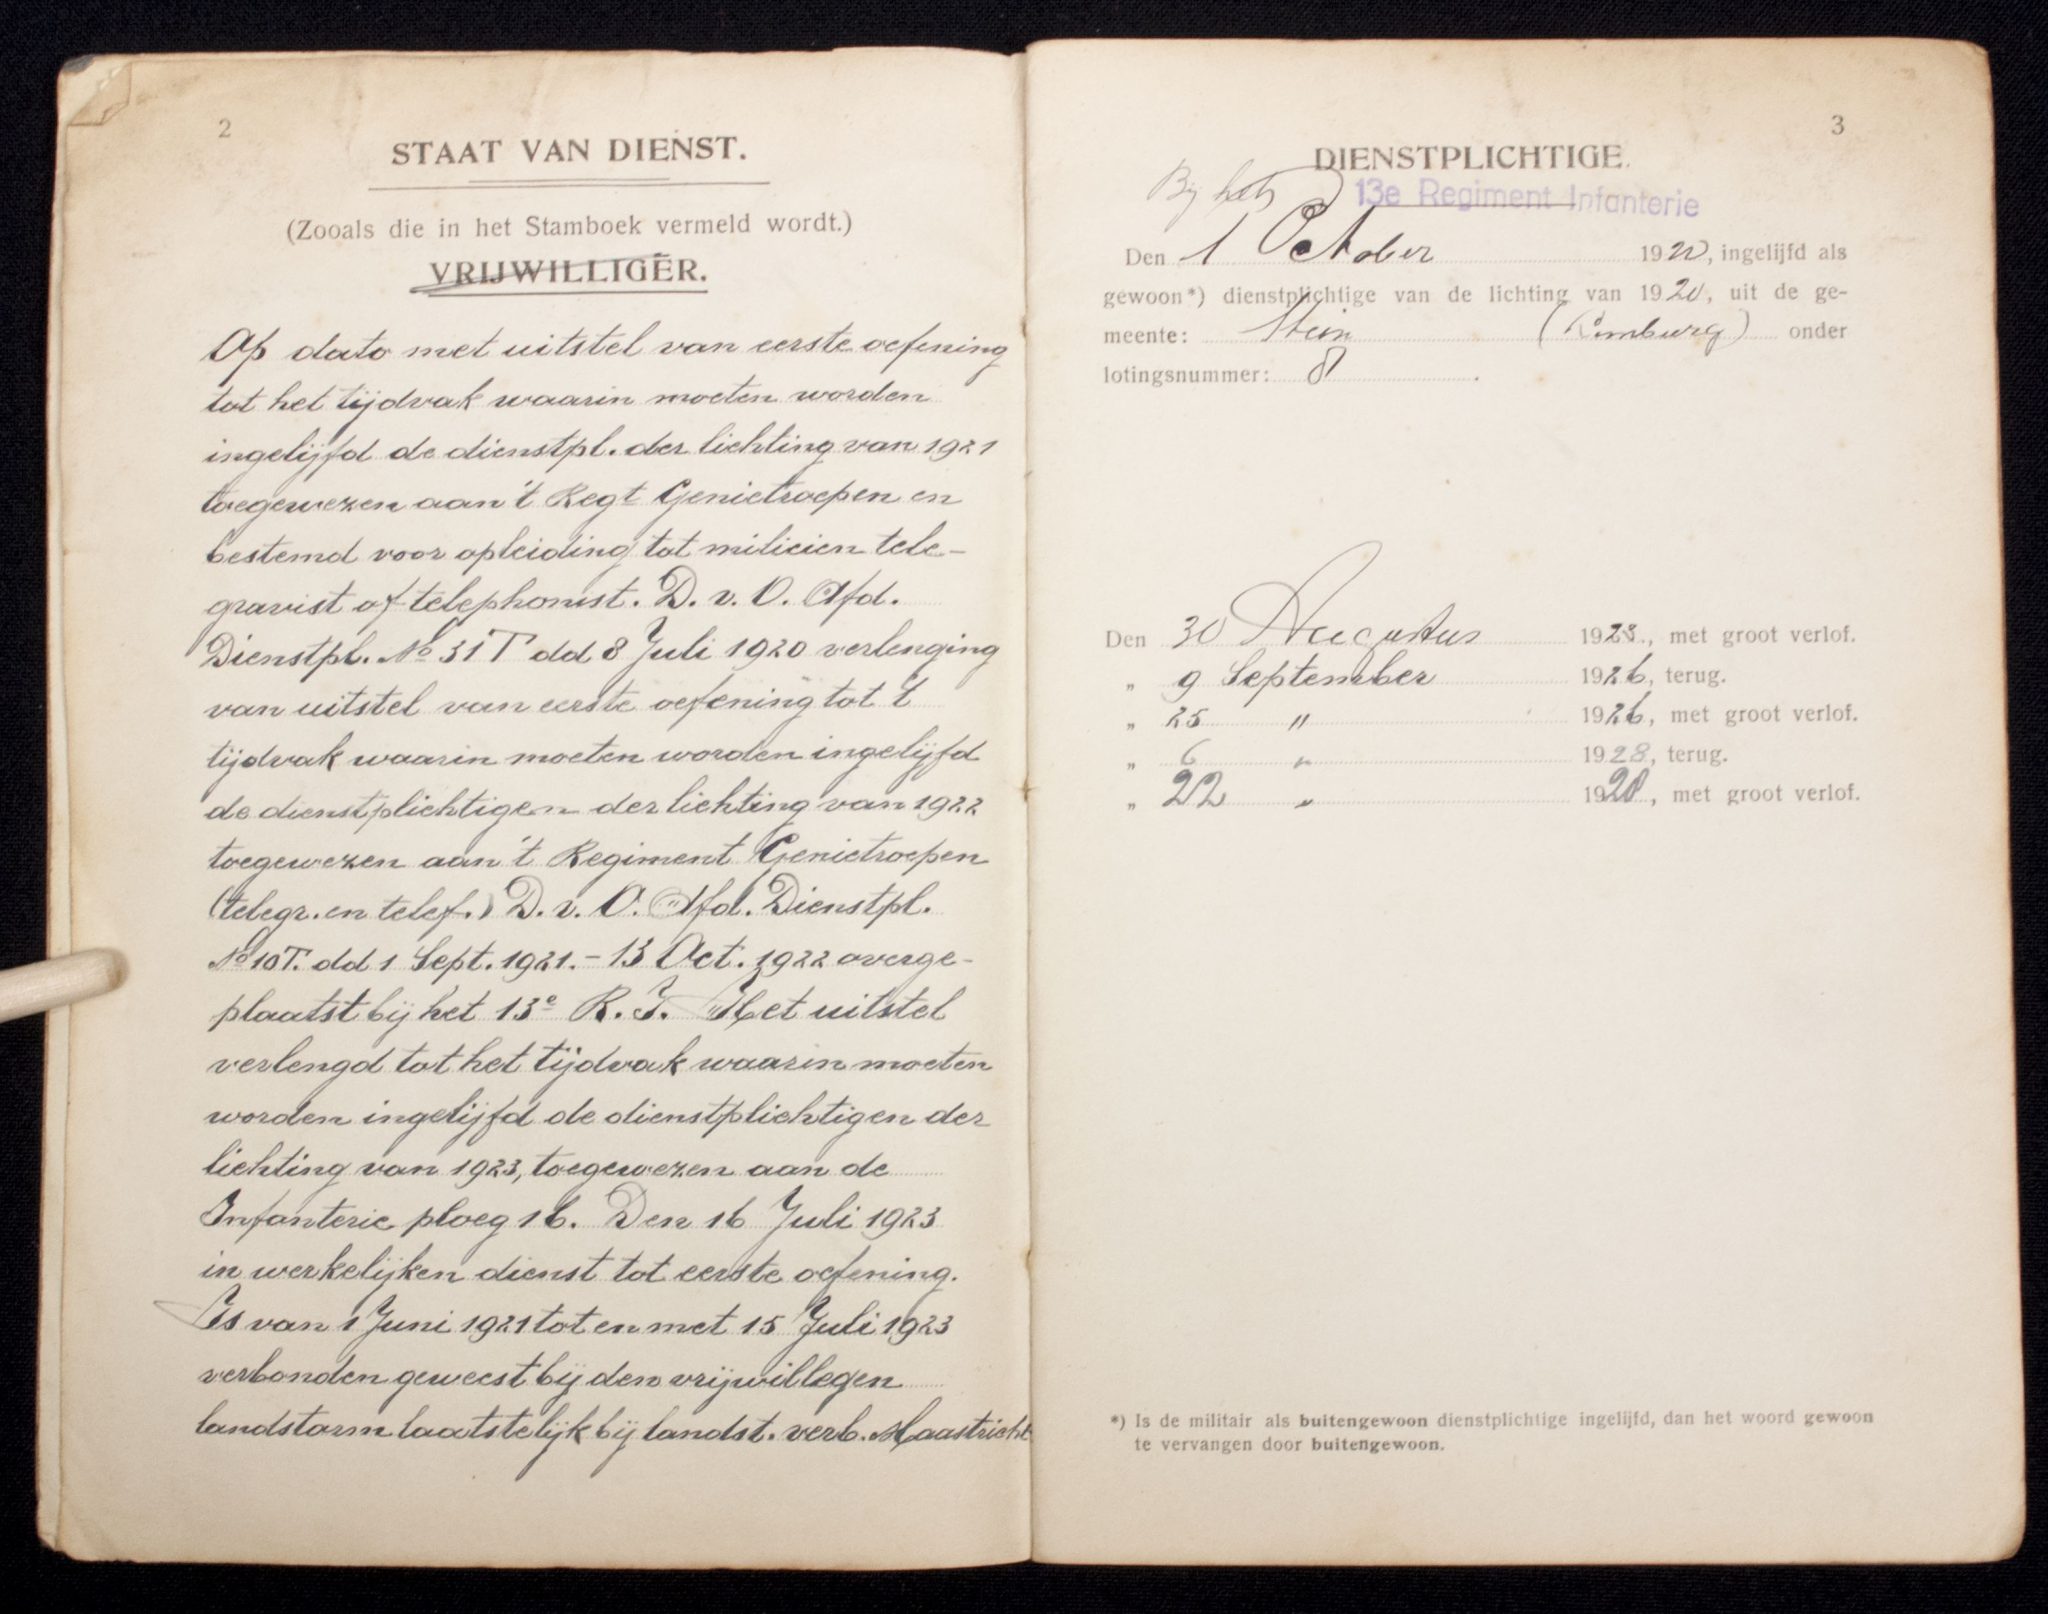 2
STAAT VAN DIENST.
(Zooals die in het Stamboek vermeld wordt.)
VRIJWILLIGER.
Op dato met uitstel van eerste oefening
tot het tijdvak waarin moeten worden
ingelijfd de dienstpl. der lichting van 1921
toegewezen aan 't Regt Genietroepen en
bestemd voor opleiding tot milicien tele-
gravist of telephonist. D. v. O. Afd.
Dienstpl. No 31T dd 8 Juli 1920 verlenging
van uitstel van eerste oefening tot 't
tijdvak waarin moeten worden ingelijfd
de dienstplichtigen der lichting van 1922
toegewezen aan 't Regiment Genietroepen
(telegr. en telef.) D. v. O. Afd. Dienstpl.
No 10T. dd 1 Sept. 1921. - 13 Oct. 1922 overge-
plaatst bij het 13e R. I. Het uitstel
verlengd tot het tijdvak waarin moeten
worden ingelijfd de dienstplichtigen der
lichting van 1923, toegewezen aan de
Infanterie ploeg 16. Den 16 Juli 1923
in werkelijken dienst tot eerste oefening.
Is van 1 Juni 1921 tot en met 15 Juli 1923
verbonden geweest bij den vrijwillegen
landstorm laatstelijk bij landst. verb. Maastricht
3
DIENSTPLICHTIGE.
Bij het 13e Regiment Infanterie
Den 1 October 19, ingelijfd als
gewoon*) dienstplichtige van de lichting van 1920, uit de ge-
meente: Stein (Limburg) onder
lotingsnummer: 8
Den 30 Augustus 1923., met groot verlof.
„ 9 September 1926, terug.
„ 25 " 1926, met groot verlof.
„ 6 " 1928, terug.
„ 22 " 1928, met groot verlof.
*) Is de militair als buitengewoon dienstplichtige ingelijfd, dan het woord gewoon
te vervangen door buitengewoon.